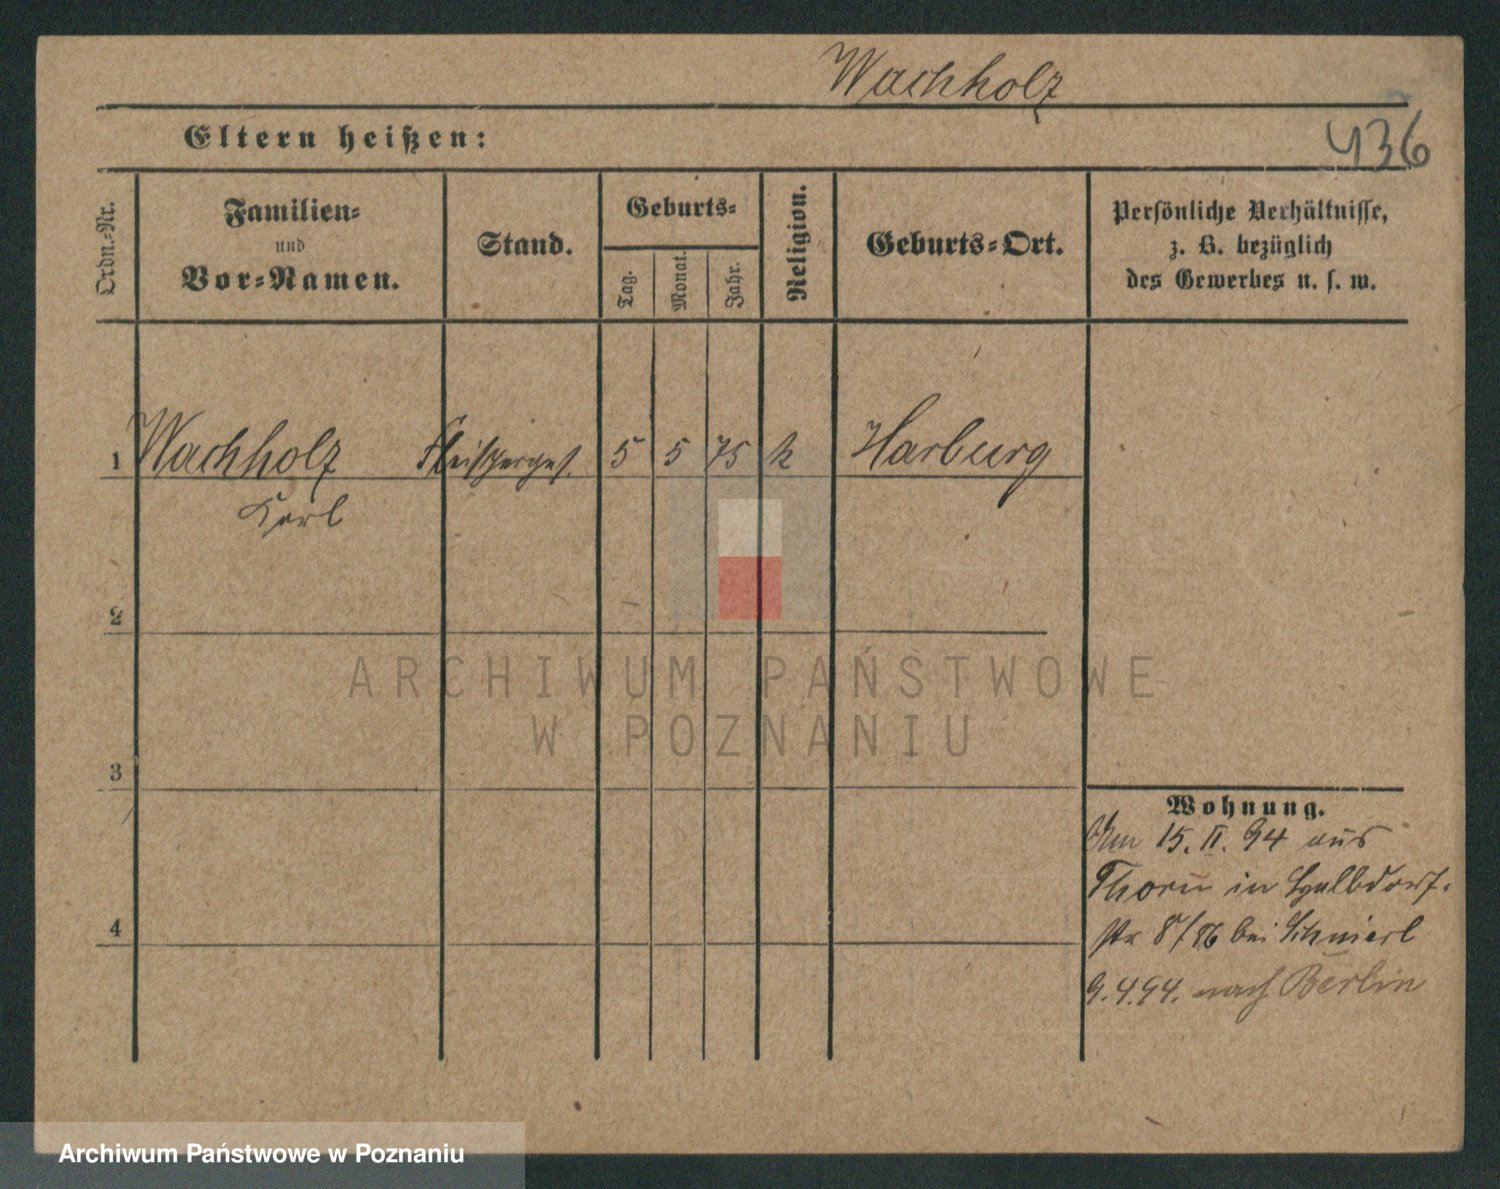 Wachholz
Eltern heißen:
436
Ordn.-Nr.
Familien-
und
Vor-Namen.
Stand.
Geburts-
Tag.
Monat.
Jahr.
Religion.
Geburts-Ort.
Persönliche Verhältnisse,
z. B. bezüglich
des Gewerbes u. s. w.
1 Wachholz Fleischerges. 5 5 75 k Harburg
Karl
2
ARCHIWUM PAŃSTWOWE
W POZNANIU
3
Wohnung.
Am 15. II. 94 aus
Thorn in Halbdorf-
str 8/ bei
4
9.4.94. nach Berlin
Archiwum Państwowe w Poznaniu